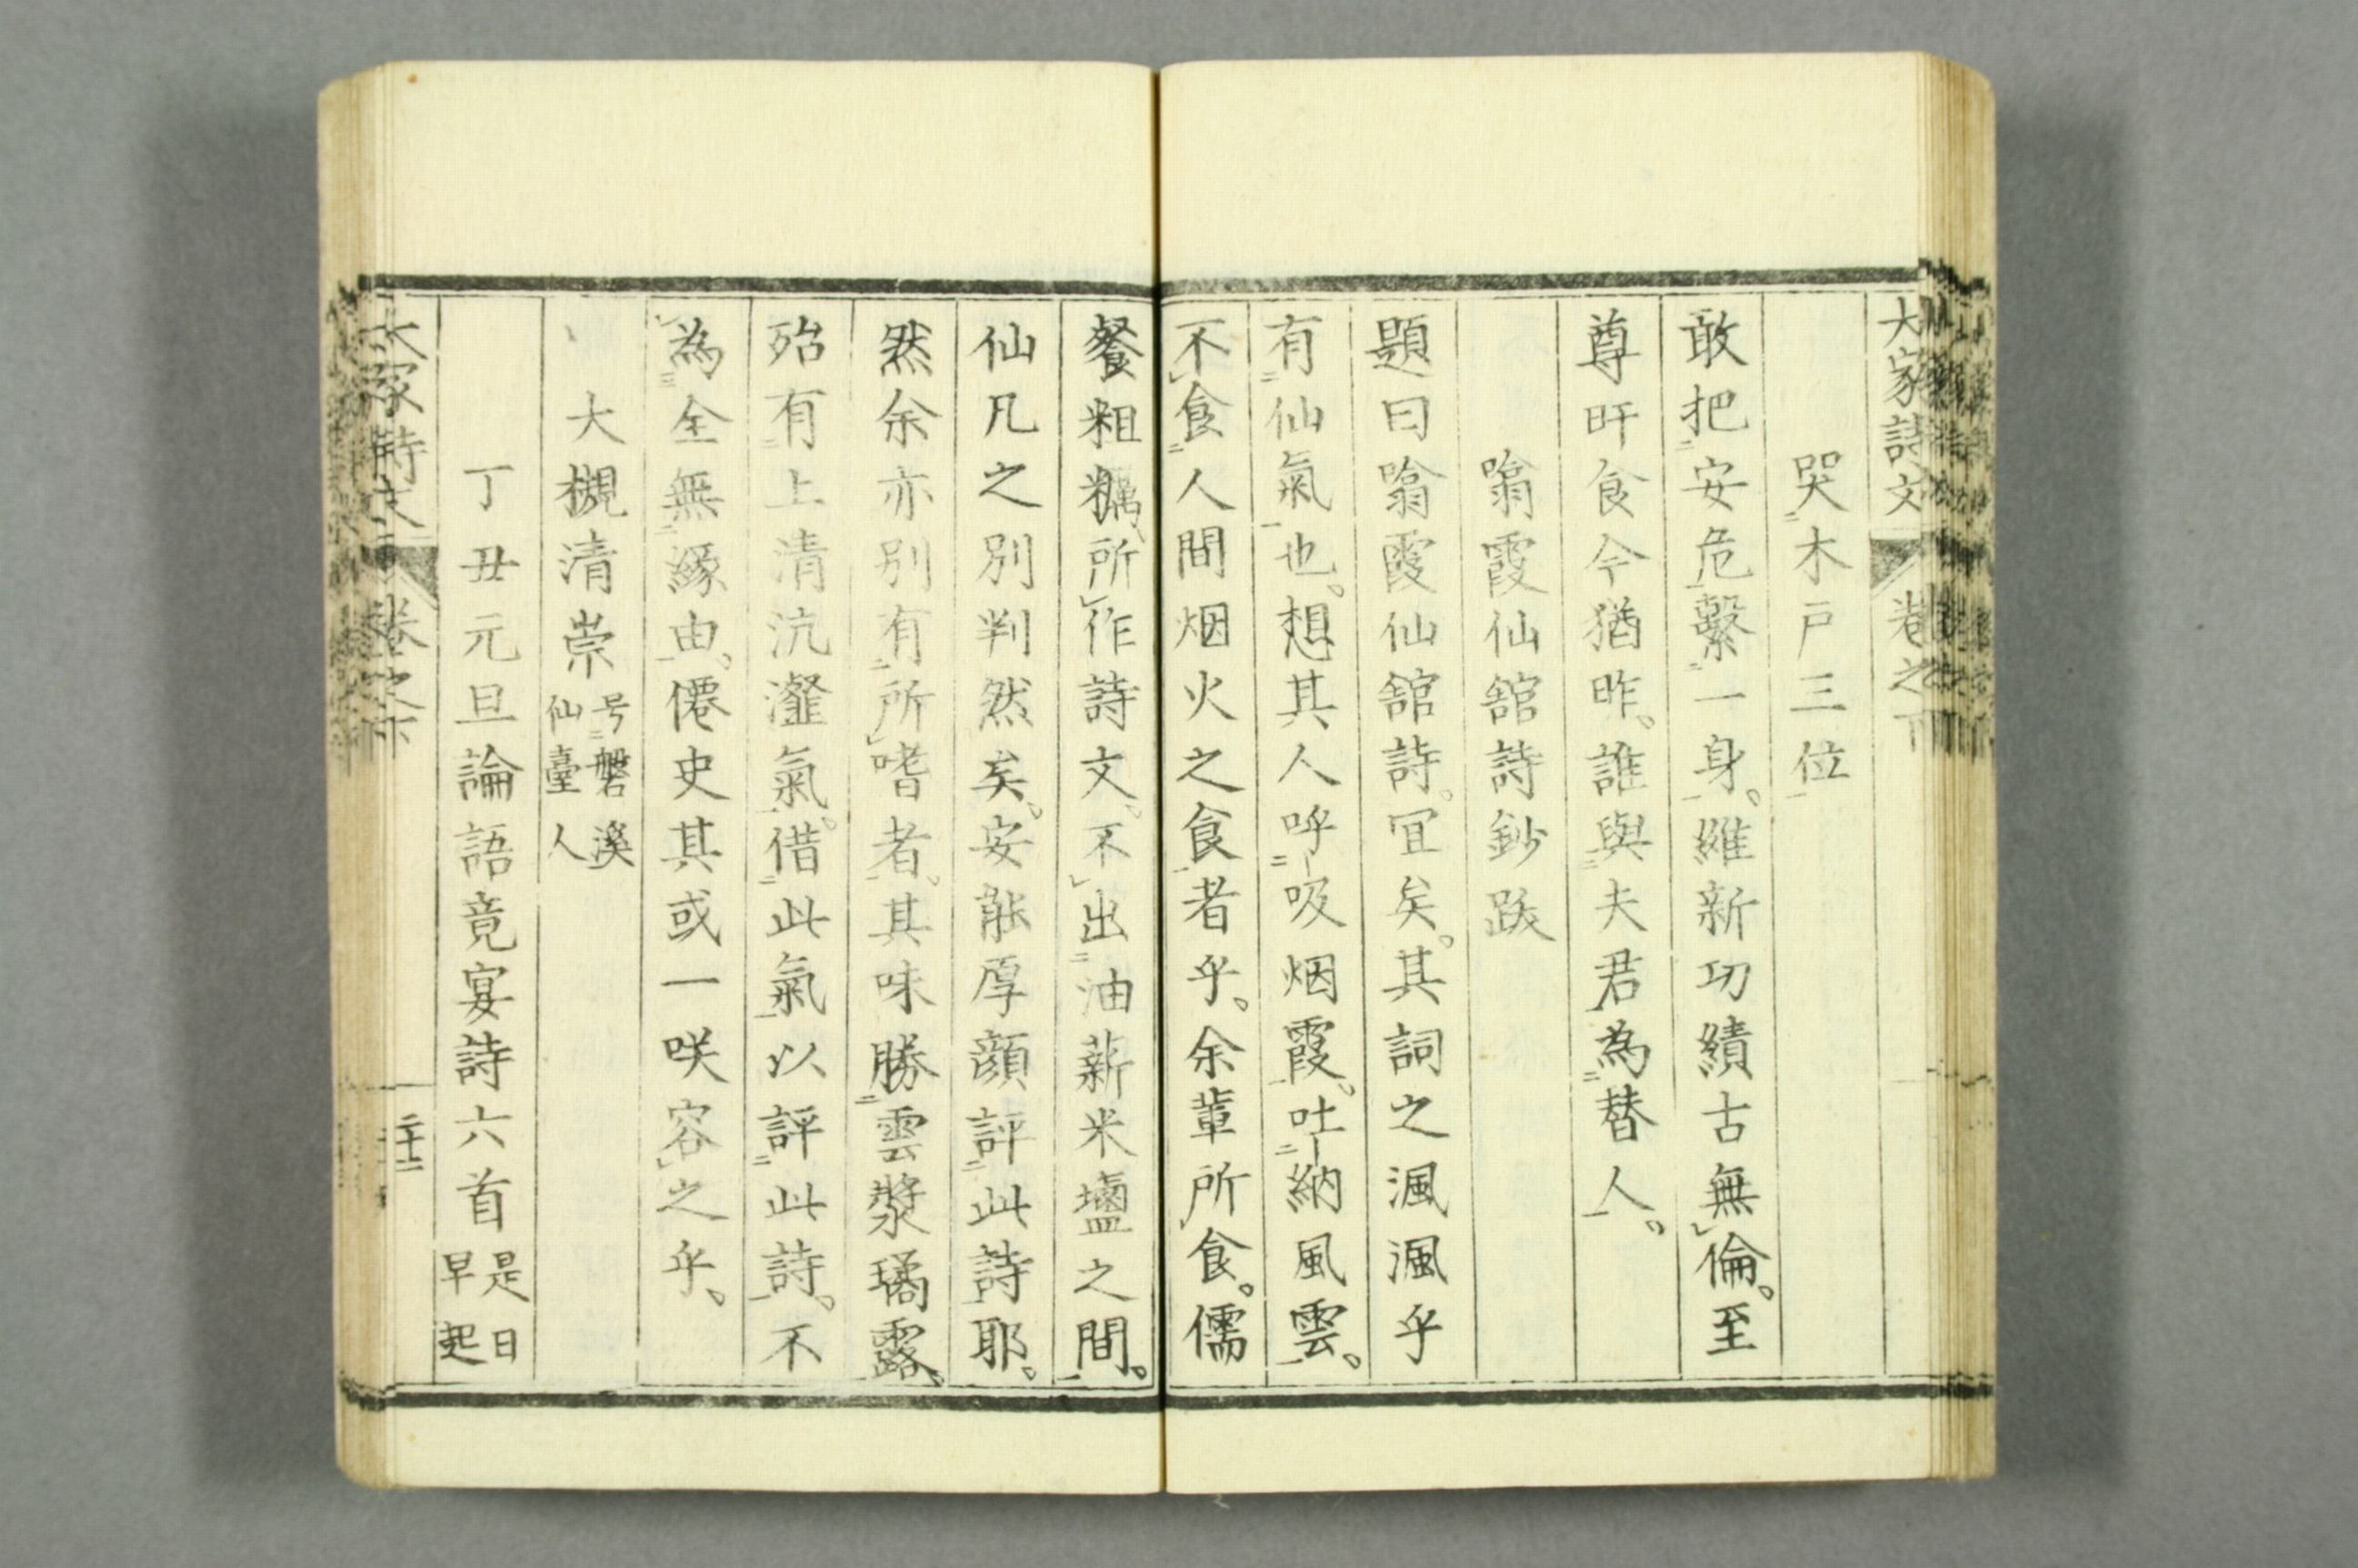 大家詩文 卷之下
哭木戸三位
敢把安危繫一身。維新功績古無倫。至
尊旰食今猶昨。誰與夫君為替人。
噏霞仙舘詩鈔跋
題曰噏霞仙舘詩。冝矣。其詞之渢渢乎
有仙氣也。想其人呼吸烟霞。吐納風雲。
不食人間烟火之食者乎。余輩所食。儒
餐粗糲、所作詩文。不出油薪米塩之間。
仙凡之別判然矣。安能厚顔評此詩耶。
然余亦別有所嗜者。其味勝雲漿璚露、
殆有上清沆瀣氣。借此氣以評此詩。不
為全無緣由。僊史其或一咲容之乎。
大槻清崇 号磐溪
仙臺人
丁丑元旦論語竟宴詩六首 是日
早起
大家詩文 卷之下 二十二